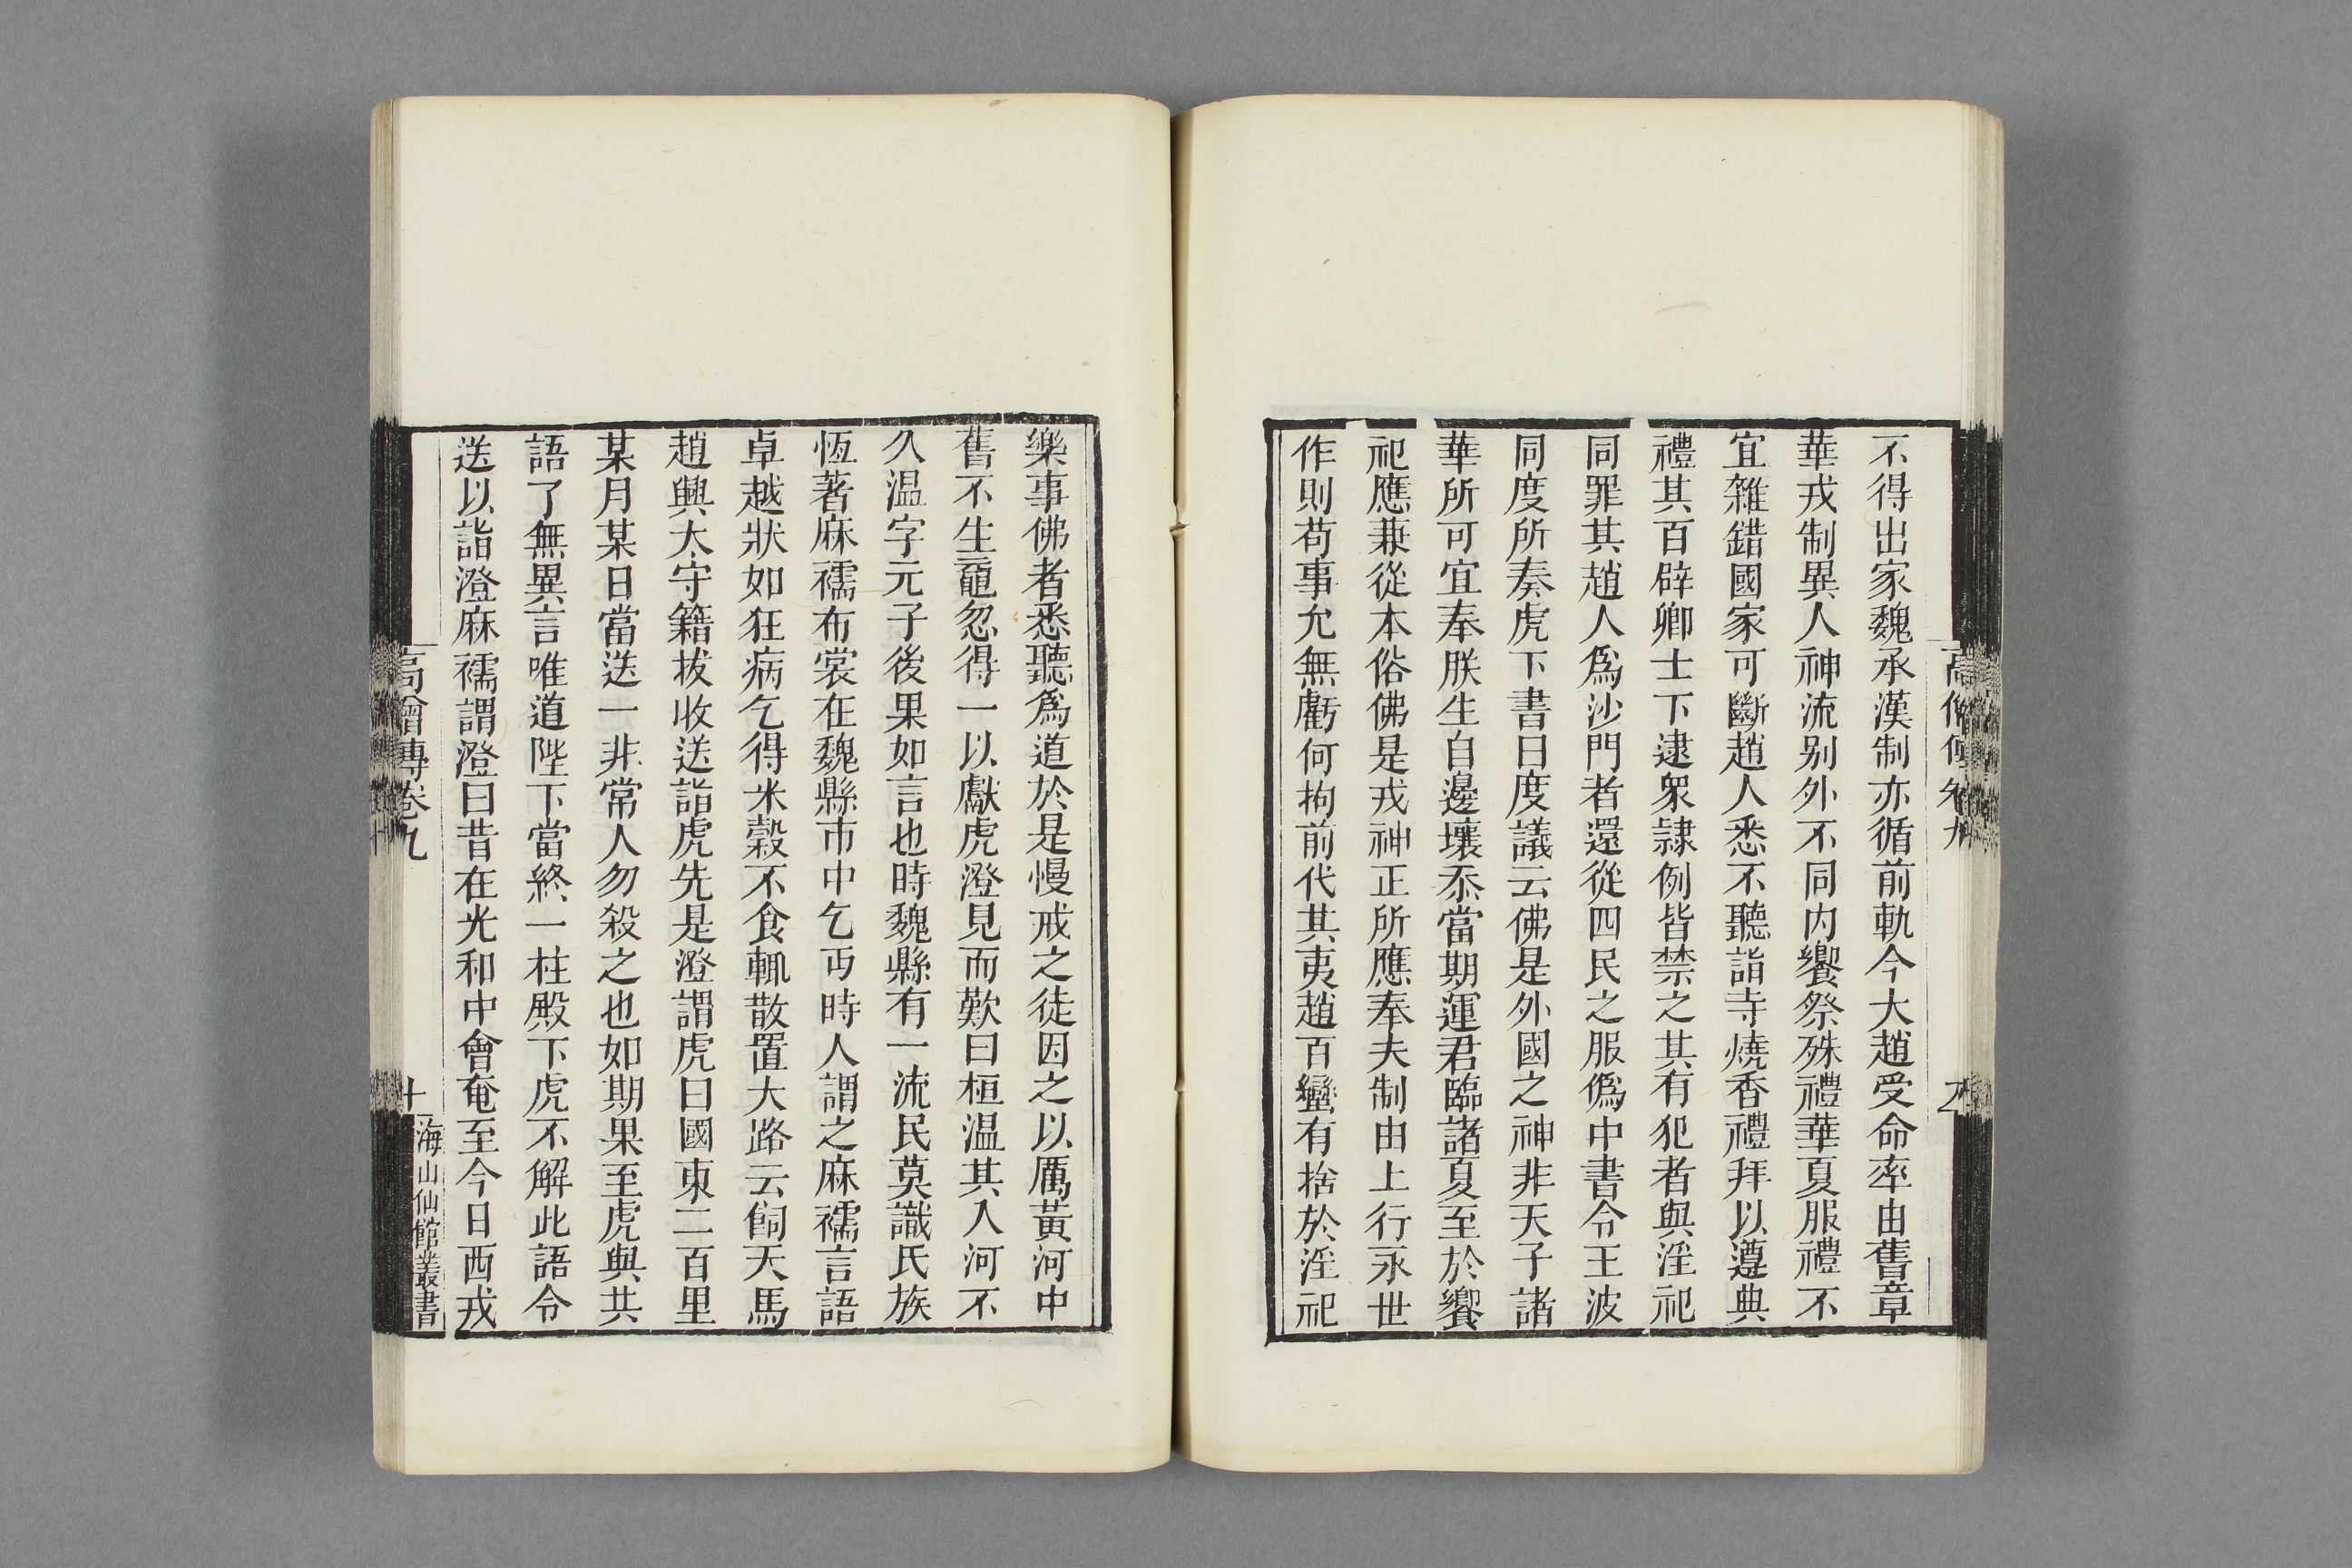 不得出家魏承漢制亦循前軌今大趙受命率由舊章
華戎制異人神流别外不同内饗祭殊禮華夏服禮不
宜雜錯國家可斷趙人悉不聽詣寺燒香禮拜以遵典
禮其百辟卿士下逮衆隷例皆禁之其有犯者與淫祀
同罪其趙人爲沙門者還從四民之服僞中書令王波
同度所奏虎下書曰度議云佛是外國之神非天子諸
華所可宜奉朕生自邊壤忝當期運君臨諸夏至於饗
祀應兼從本俗佛是戎神正所應奉夫制由上行永世
作則苟事允無虧何拘前代其夷趙百蠻有捨於淫祀
樂事佛者悉聽爲道於是慢戒之徒因之以厲黃河中
舊不生黿忽得一以獻虎澄見而歎曰桓温其入河不
久温字元子後果如言也時魏縣有一流民莫識氏族
恆著麻襦布裳在魏縣市中乞丐時人謂之麻襦言語
卓越狀如狂病乞得米穀不食輒散置大路云飼天馬
趙興太守籍拔收送詣虎先是澄謂虎曰國東二百里
某月某日當送一非常人勿殺之也如期果至虎與共
語了無異言唯道陛下當終一柱殿下虎不解此語令
送以詣澄麻襦謂澄曰昔在光和中會奄至今日西戎
高僧傳卷九
十
海山仙館叢書